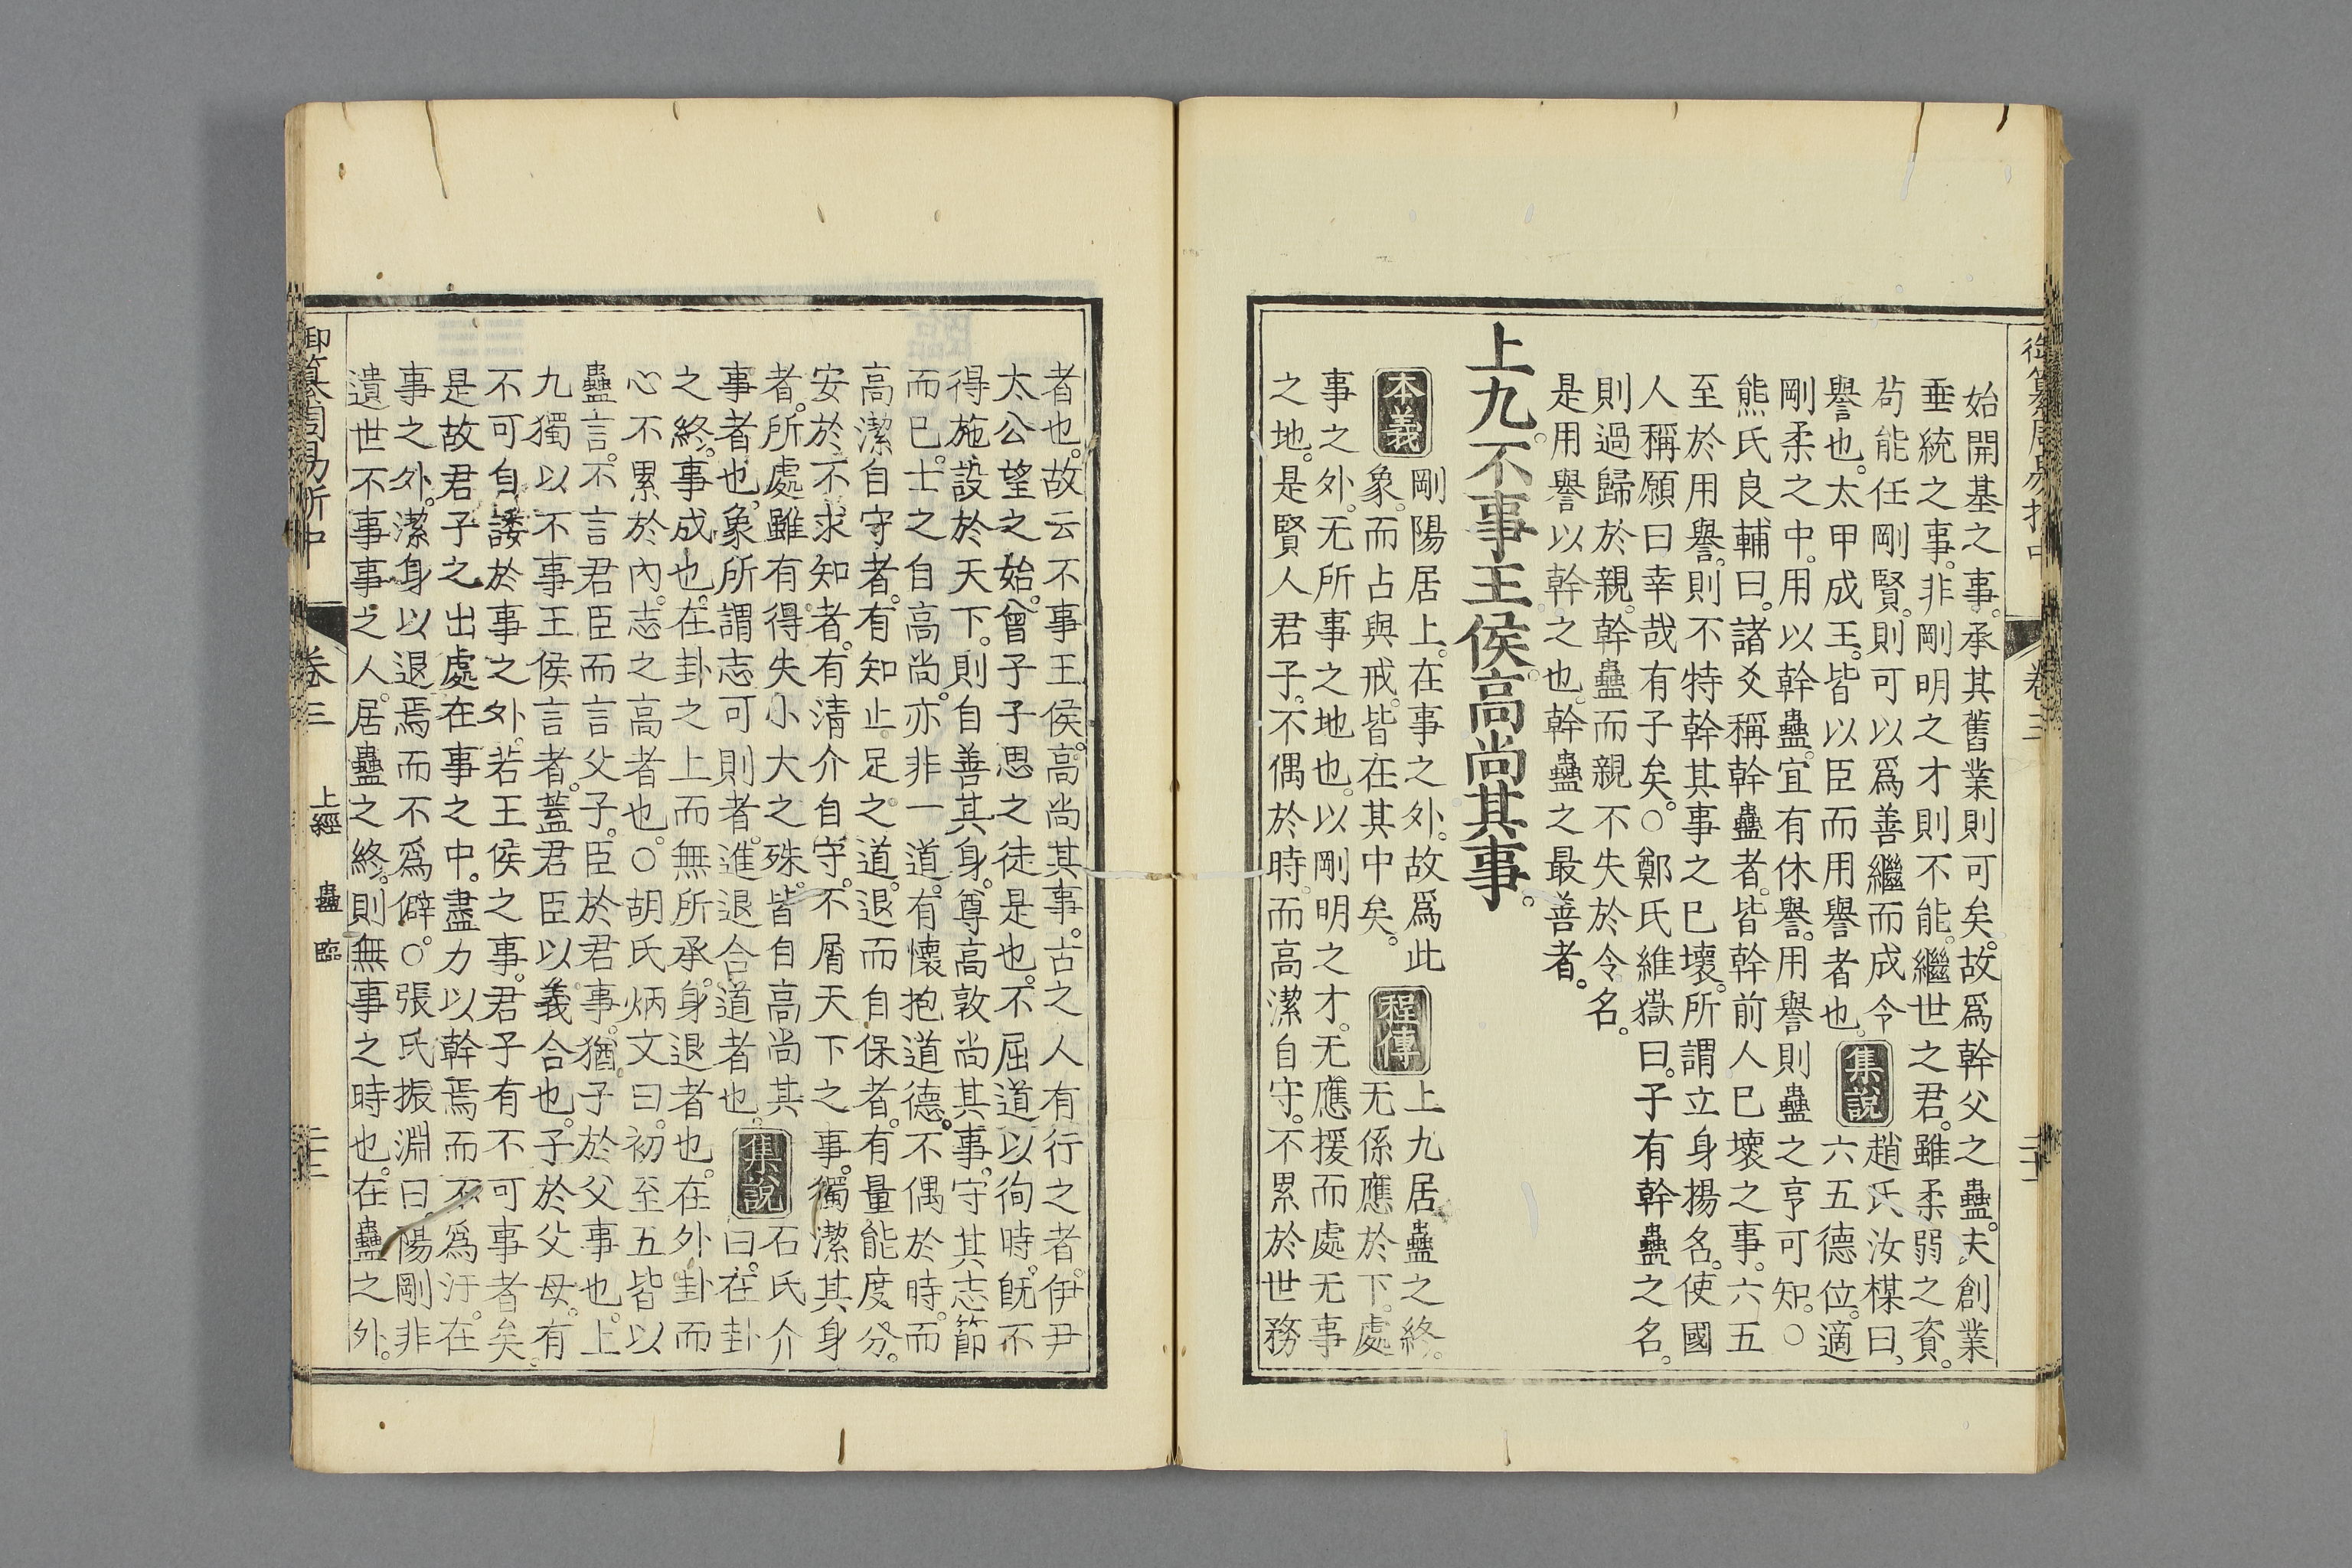 御纂周易折中 卷三
始開基之事。承其舊業則可矣。故爲幹父之蠱。夫創業
垂統之事。非剛明之才則不能。繼世之君。雖柔弱之資。
苟能任剛賢。則可以爲善繼而成令
譽也。太甲成王。皆以臣而用譽者也。
集說
趙氏汝楳曰、
六五德位。適
剛柔之中。用以幹蠱。宜有休譽。用譽則蠱之亨可知。○
熊氏良輔曰。諸爻稱幹蠱者。皆幹前人已壞之事。六五
至於用譽。則不特幹其事之已壞。所謂立身揚名。使國
人稱願曰幸哉有子矣。○鄭氏維嶽曰。子有幹蠱之名。
則過歸於親。幹蠱而親不失於令名。
是用譽以幹之也。幹蠱之最善者。
上九。不事王侯。高尚其事。
本義
剛陽居上。在事之外。故爲此
象。而占與戒。皆在其中矣。
程傳
上九居蠱之終。
无係應於下。處
事之外。无所事之地也。以剛明之才。无應援而處无事
之地。是賢人君子。不偶於時。而高潔自守。不累於世務
者也。故云不事王侯。高尚其事。古之人有行之者。伊尹
太公望之始。曾子子思之徒是也。不屈道以徇時。旣不
得施設於天下。則自善其身。尊高敦尚其事。守其志節
而已。士之自高尚。亦非一道。有懷抱道德。不偶於時。而
高潔自守者。有知止足之道。退而自保者。有量能度分。
安於不求知者。有清介自守。不屑天下之事。獨潔其身
者。所處雖有得失小大之殊。皆自高尚其
事者也。象所謂志可則者。進退合道者也。
集說
石氏介
曰。在卦
之終。事成也。在卦之上而無所承。身退者也。在外卦而
心不累於內。志之高者也。○胡氏炳文曰。初至五皆以
蠱言。不言君臣而言父子。臣於君事。猶子於父事也。上
九獨以不事王侯言者。蓋君臣以義合也。子於父母。有
不可自諉於事之外。若王侯之事。君子有不可事者矣。
是故君子之出處在事之中。盡力以幹焉而不爲汙。在
事之外。潔身以退焉而不爲僻。○張氏振淵曰。陽剛非
遺世不事事之人。居蠱之終。則無事之時也。在蠱之外。
御纂周易折中 卷三 上經 蠱 臨